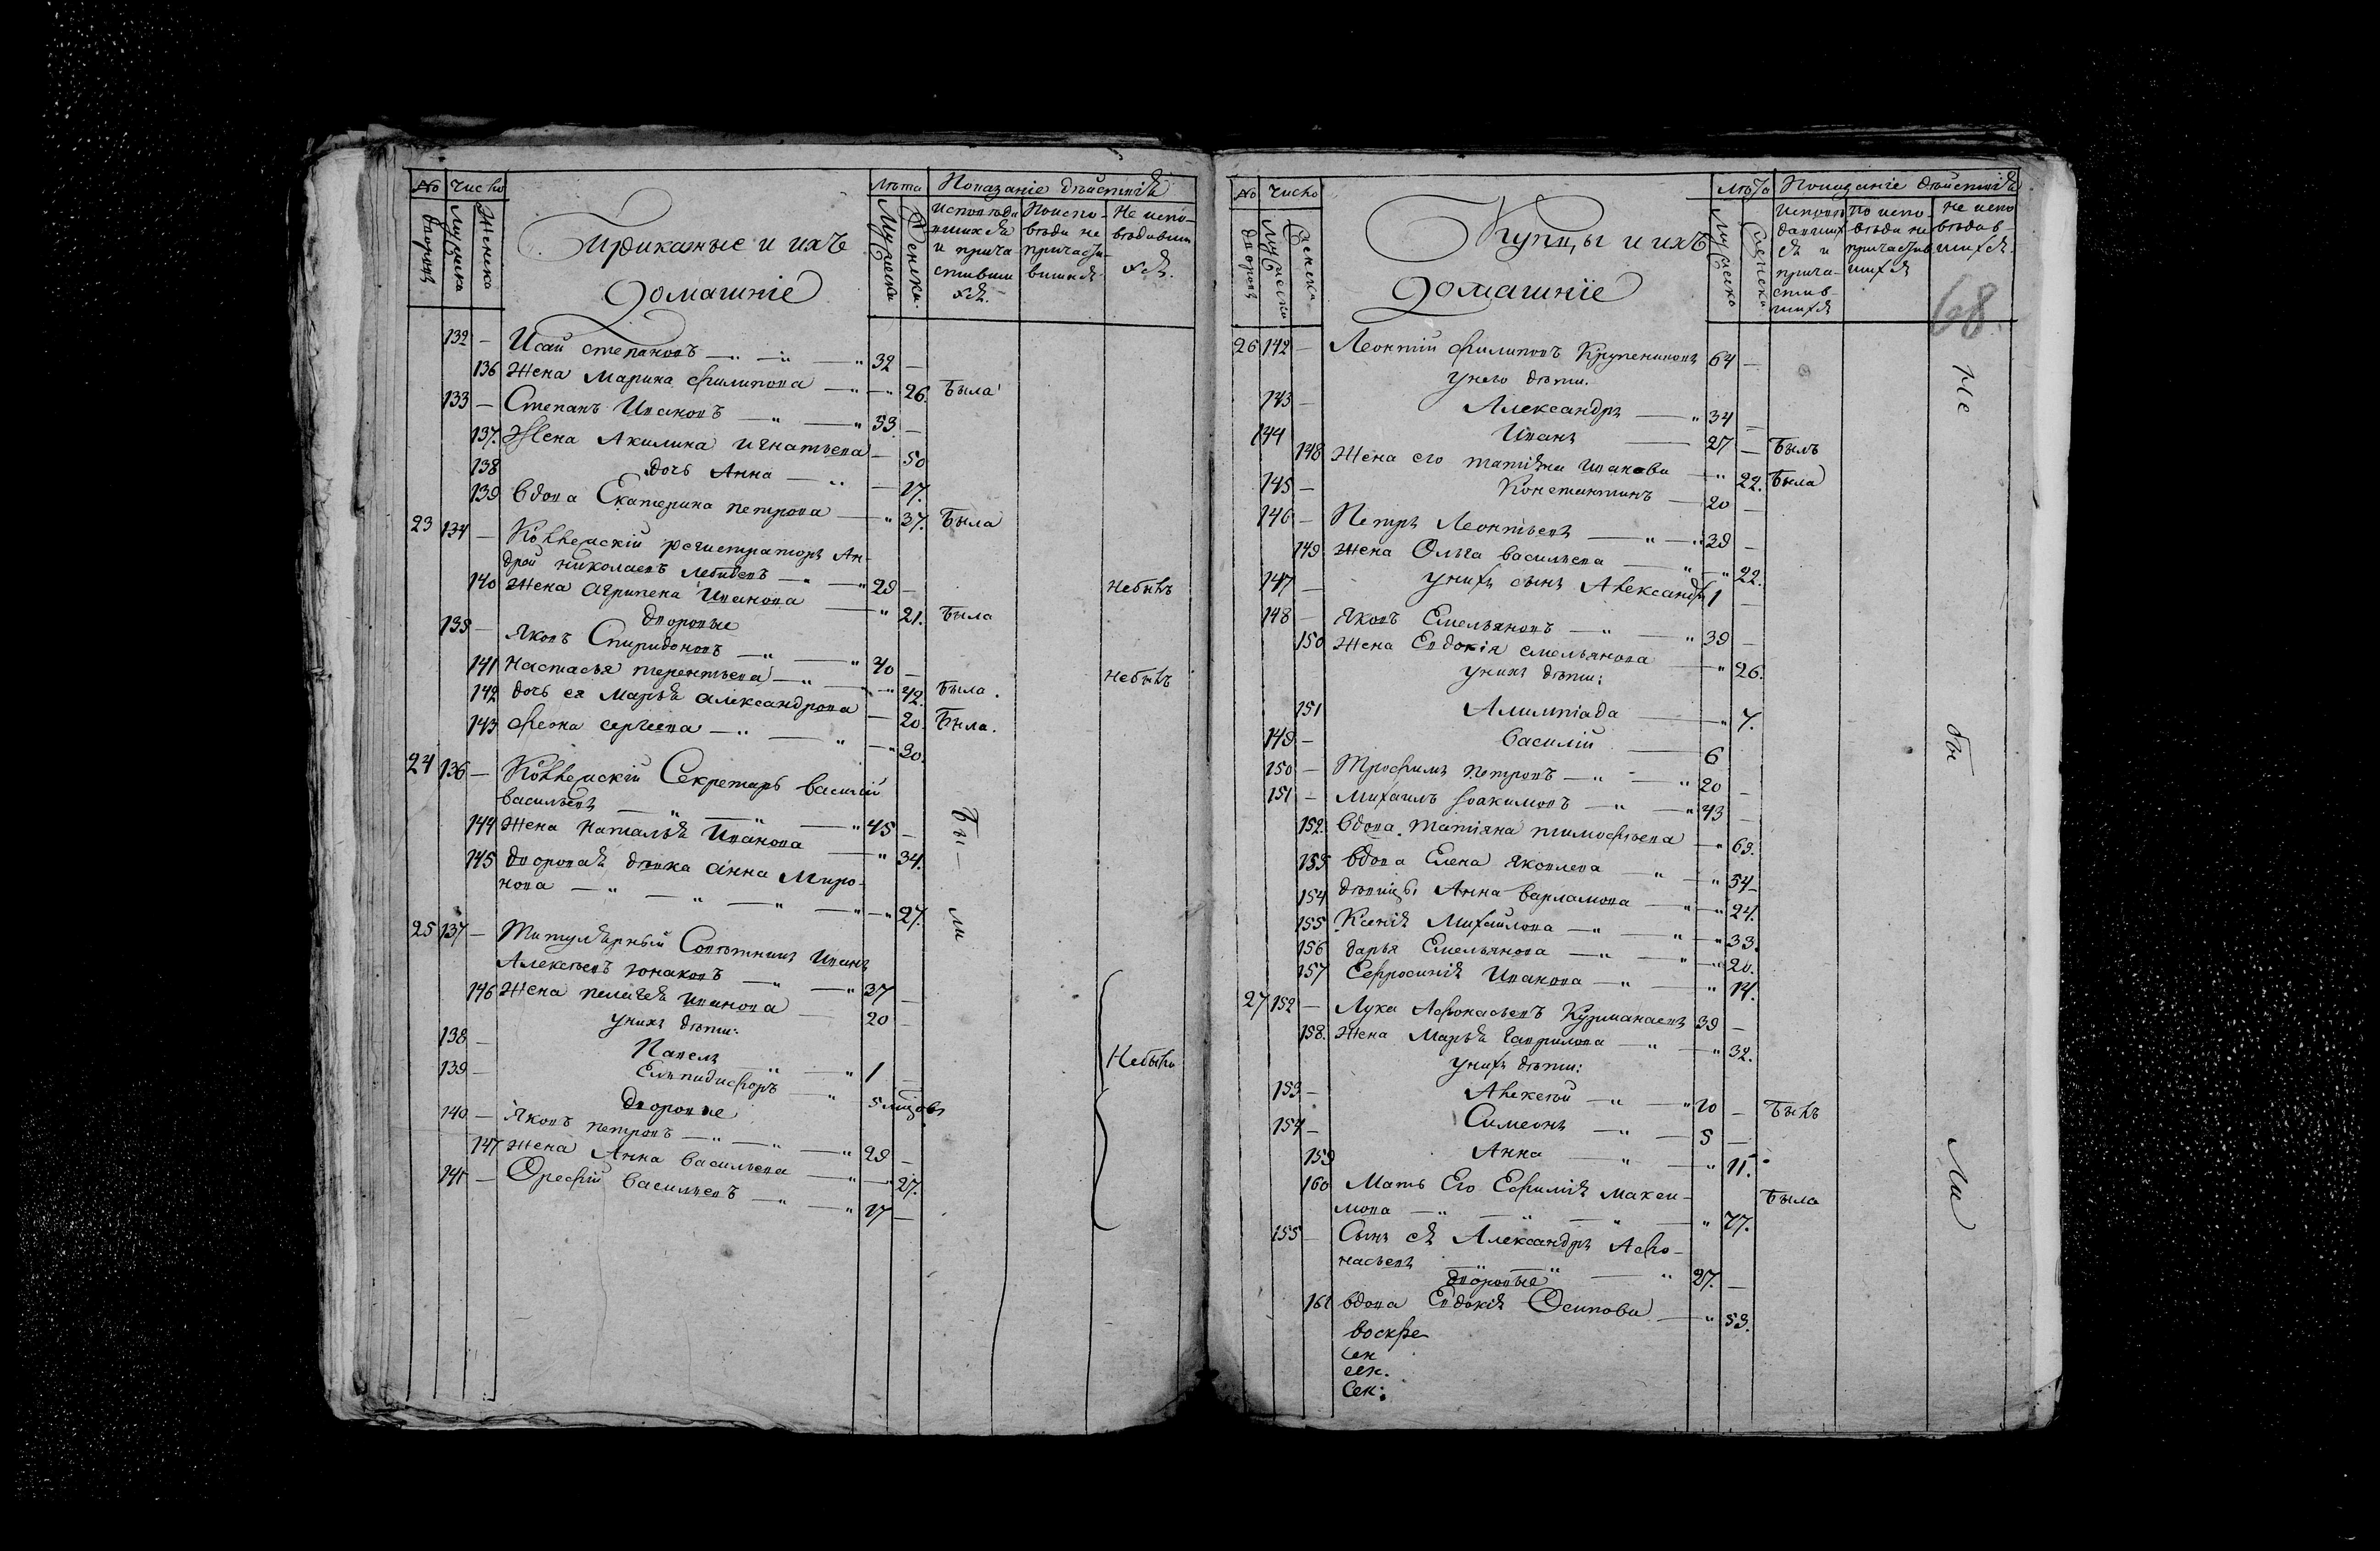 № Число Лѣта Показаніе дѣйствій
дворовъ Мужеска Женска
Приказные и ихъ
домашніе
Мужеска Женска.
Исповѣда
вшихся
и прича
стивши
хся.
Поиспо-
вѣди не
причасти-
вшихся
Не испо-
вѣдавши
хся.
132 — Исаи степановъ — 32 —
136 Жена Марина Филипова — 26. Была
133 — Степанъ Ивановъ — 53. —
137. Жена Акилина Игнатьева — 50
138 дочь Анна — 17.
139 вдова Екатерина петрова — 37. Была
23 134 — Коллежскій регистраторъ Ан-
дрей николаевъ Лебидевъ — 29 — Небылъ
140 Жена Агрипена Иванова — 21. Была
дворовые
135 — Яковъ Спиридоновъ — 40 — Небылъ
141 Настасья терентьева — 42. Была.
142 дочь ея Марья александрова — 20 Была.
143 Феона сергеева — 30.
24 136 — Коллежскій Секретарь василій
васильевъ — 45 —
144 Жена Наталья Иванова — 34.
145 дворовая дѣвка анна Миро-
нова — 27.
Бы — ли
25 137 — Титулярный Совѣтникъ Иванъ
Алексѣевъ юнаковъ — 37 —
146 Жена пелагея иванова — 20 —
унихъ дѣти:
138 — Павелъ — 1 —
139 — Елпидифоръ — 5 мѣцовъ
Небыли
дворовые
140 — Яковъ петровъ — 29 —
147 Жена Анна васильева — 27.
141 — Орефій васильевъ — 17 —
№ Число Лѣта Показаніе дѣйствій
дворовъ Мужеска Женска
Купцы и ихъ
домашніе
Мужеска Женска
Исповѣ
давших
ся и
прича-
стив-
шихся
по испо-
вѣди не
причастив
шихся
не испо
вѣдав-
шихся.
68.
26 142 — Леонтій Филиповъ Крупениковъ 64 —
унего дѣти.
143 — Александръ — 34 —
144 Иванъ — 27 — Былъ
148 Жена его татіяна иванова — 22. Была
145 — Константинъ — 20 —
146 — Петръ Леонтьевъ — 39 —
149. Жена Ольга васильева — 22.
147 — унихъ сынъ Александръ 1 —
148 — Яковъ Емельяновъ — 39 —
150 Жена Евдокія емельянова — 26.
унихъ дѣти:
151 Алимпіада — 7.
149 — василій — 6
150 — Трофимъ петровъ — 20 —
151 — Михаилъ Іоакимовъ — 43 —
152. вдова. татіяна тимофѣева — 69.
153. вдова Елена яковлева — 54
154 дѣвицы Анна варламова — 24.
155 Ксенія Михаилова — 33.
156 дарья Емельянова — 20.
157 Ефросинія Иванова — 14.
27 152 — Лука Афонасьевъ Курманаевъ 39 —
158. Жена Марья гаврилова — 32.
унихъ дѣти:
153 — Алексѣй — 10 — Былъ
154 — Симеонъ — 5 —
159 Анна — 11.
160 Мать Его Ефимія макси-
мова — 77. Была
155 — Сынъ ея Александръ Афо-
насьевъ — 27. —
дворовые
161 вдова Евдокія Осипова — 53.
воскре
сен
сен.
Сен:
Не бы Ли